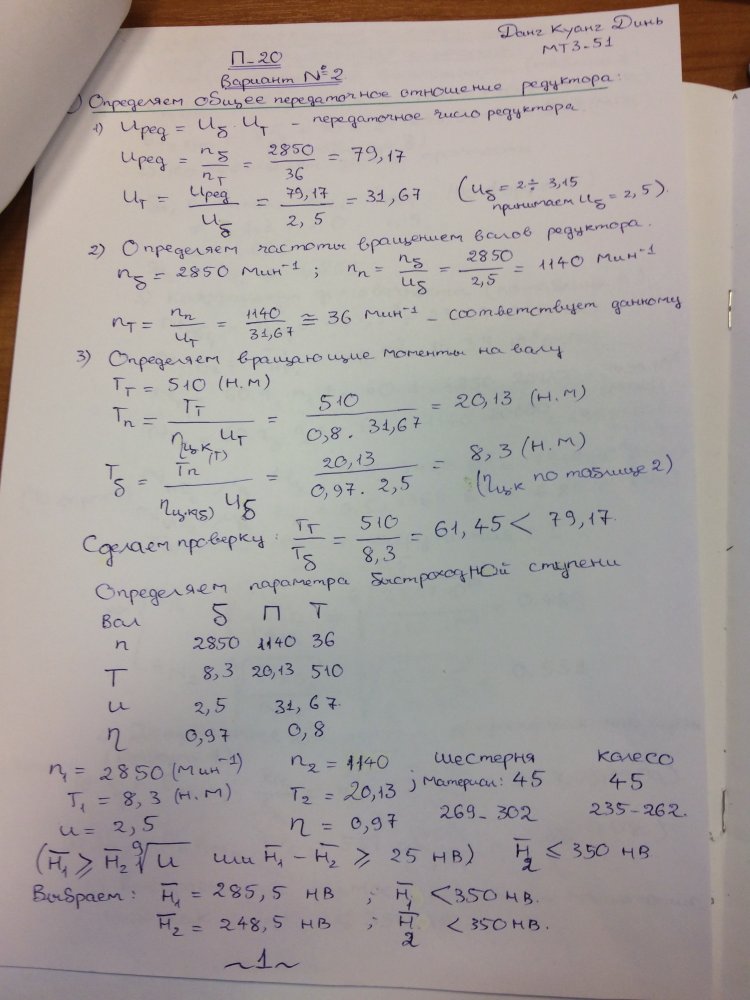 Данг Куанг Динь
МТ3-51
П-20
Вариант №2
Определяем общее передаточное отношение редуктора:
1) Uред = Uб · Uт - передаточное число редуктора
Uред = nб/nт = 2850/36 = 79,17
Uт = Uред/Uб = 79,17/2,5 = 31,67 (Uб = 2 ÷ 3,15
принимаем Uб = 2,5).
2) Определяем частоты вращением валов редуктора.
nб = 2850 мин⁻¹ ; nп = nб/uб = 2850/2,5 = 1140 мин⁻¹
nт = nп/uт = 1140/31,67 ≅ 36 мин⁻¹ - соответствует данному
3) Определяем вращающие моменты на валу
Tт = 510 (Н.м)
Tп = Tт/(ηцк(т) Uт) = 510/(0,8 . 31,67) = 20,13 (Н.м)
Tб = Tп/(ηцк(б) Uб) = 20,13/(0,97 · 2,5) = 8,3 (Н.м)
(ηцк по таблице 2)
Сделаем проверку: Tт/Tб = 510/8,3 = 61,45 < 79,17.
Определяем параметра быстроходной ступени
Вал Б П Т
n 2850 1140 36
T 8,3 20,13 510
u 2,5 31,67
η 0,97 0,8
n₁ = 2850 (мин⁻¹) n₂ = 1140 шестерня колесо
T₁ = 8,3 (Н.м) T₂ = 20,13 ; материал: 45 45
u = 2,5 η = 0,97 269-302 235-262.
(H̄₁ ≥ H̄₂ ⁹√u или H̄₁ - H̄₂ ≥ 25 НВ) H̄₂ ≤ 350 НВ
Выбраем: H̄₁ = 285,5 НВ ; H̄₁ < 350 НВ.
H̄₂ = 248,5 НВ ; H̄₂ < 350 НВ.
~1~